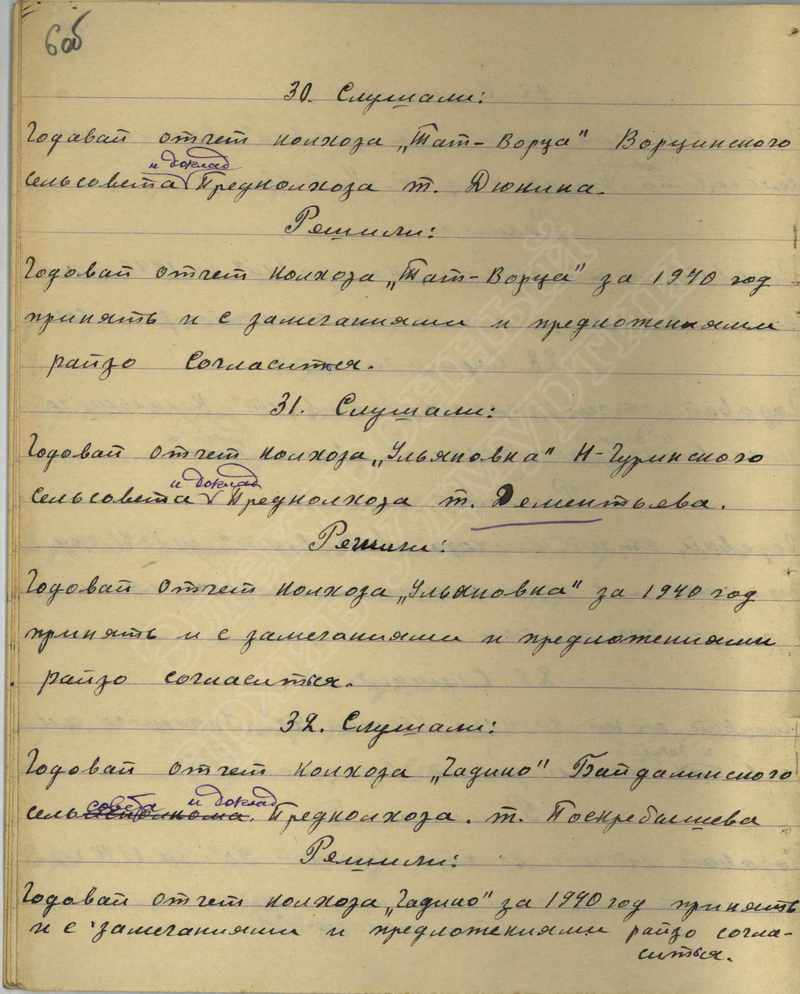 6об
30. Слушали:
Годавай отчет колхоза „Тат-Ворца" Ворцинского
и доклад
сельсовета Предколхоза т. Дюкина.
Решили:
Годовай отчет колхоза „Тат-Ворца" за 1940 год
принять и с замечаниями и предложениями
райзо согласиться.
31. Слушали:
Годовай отчет колхоза „Ульяновка" Н-Чуринского
и доклад
сельсовета Предколхоза т. Дементьева.
Решили:
Годовай отчет колхоза „Ульяновка" за 1940 год
принять и с замечаниями и предложениями
райзо согласиться.
32. Слушали:
Годовай отчет колхоза „Чадино" Байдалинского
совета и доклад
сельисполкома. Предколхоза. т. Поскребышева
Решили:
Годовай отчет колхоза „Чадино" за 1940 год принять
и с замечаниями и предложениями райзо согла-
ситься.